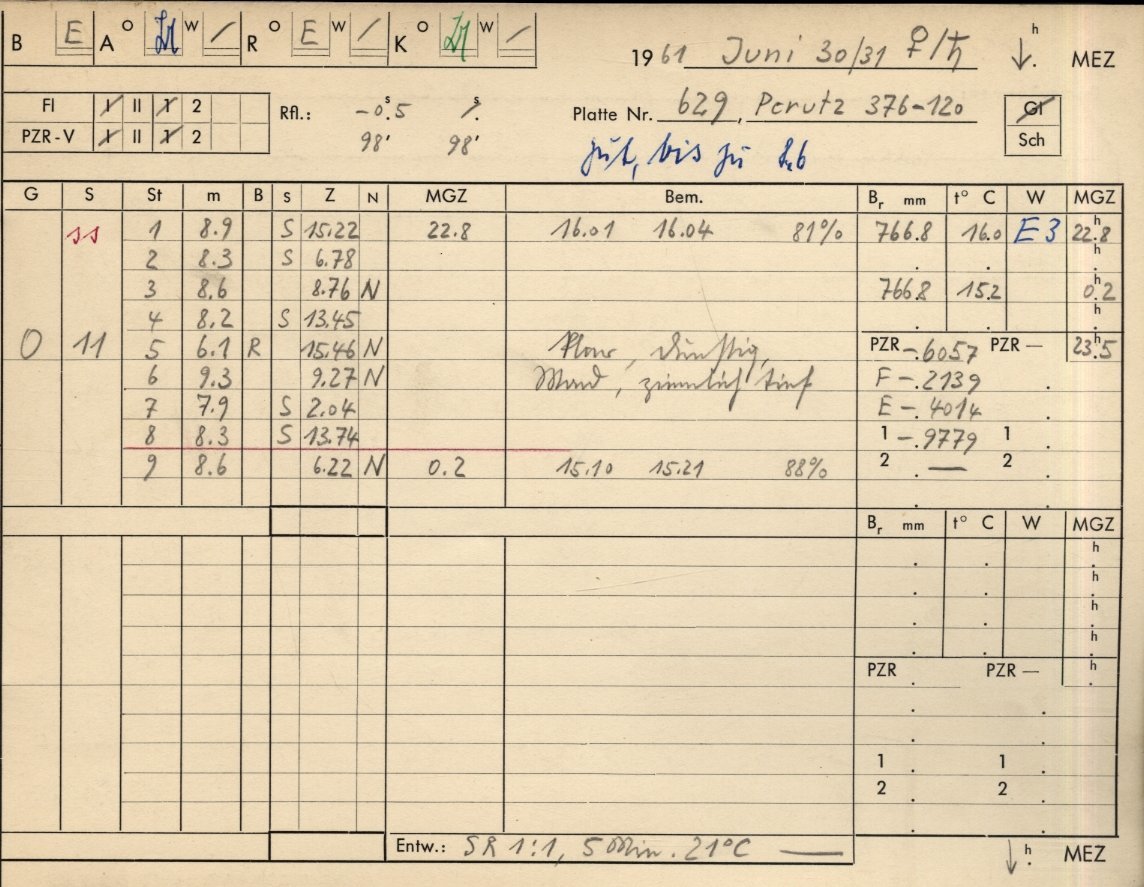 B E A O W / R O E W / K O W /
19 61 Juni 30/31 ♀/♄ h MEZ
FI I II 1 2 Rfl.: -0.ˢ5 /.ˢ Platte Nr. 629, Perutz 376-120 Gl
PZR-V I II 1 2 98' 98' Sch
gut, bis zu
G S St m B S Z N MGZ Bem. Bᵣ mm t° C W MGZ
ss 1 8.9 S 15.22 22.8 16.01 16.04 81% 766.8 16.0 E3 22.ʰ8
2 8.3 S 6.78 h
3 8.6 8.76 N 766.8 15.2 0.ʰ2
4 8.2 S 13.45 h
0 11 5 6.1 R 15.46 N Klar, dunstig, PZR -.6057 PZR — 23.ʰ5
6 9.3 9.27 N Mond, ziemlich tief F -.2139
7 7.9 S 2.04 E -.4014
8 8.3 S 13.74 1 -.9779 1
9 8.6 6.22 N 0.2 15.10 15.21 88% 2 — 2
Bᵣ mm t° C W MGZ
h
h
h
h
PZR PZR — h
1 1
2 2
Entw.: SR 1:1, 5 Min. 21°C — h MEZ